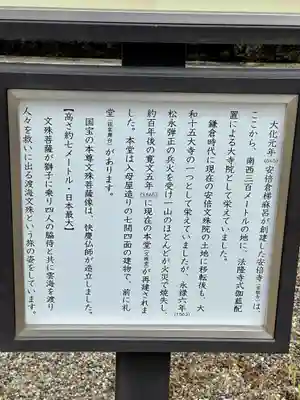 大化元年(645)安倍倉梯麻呂が創建した安倍寺は、
ここから、南西三百メートルの地に、法隆寺式伽藍配
置による大寺院として栄えていました。
鎌倉時代に現在の安倍文殊院の土地に移転後も、大
和十五大寺の一つとして栄えていましたが、永禄六年(1563)
松永弾正の兵火を受け一山のほとんどが火災で焼失し、
約百年後の寛文五年(1665)に現在の本堂(文殊堂)が再建されま
した。本堂は入母屋造りの七間四面の建物で、前に礼
堂(能楽舞台)があります。
国宝の本尊文殊菩薩像は、快慶仏師が造立しました。
【高さ約七メートル・日本最大】
文殊菩薩が獅子に乗り四人の脇侍と共に雲海を渡り
人々を救いに出る渡海文殊という旅の姿をしています。